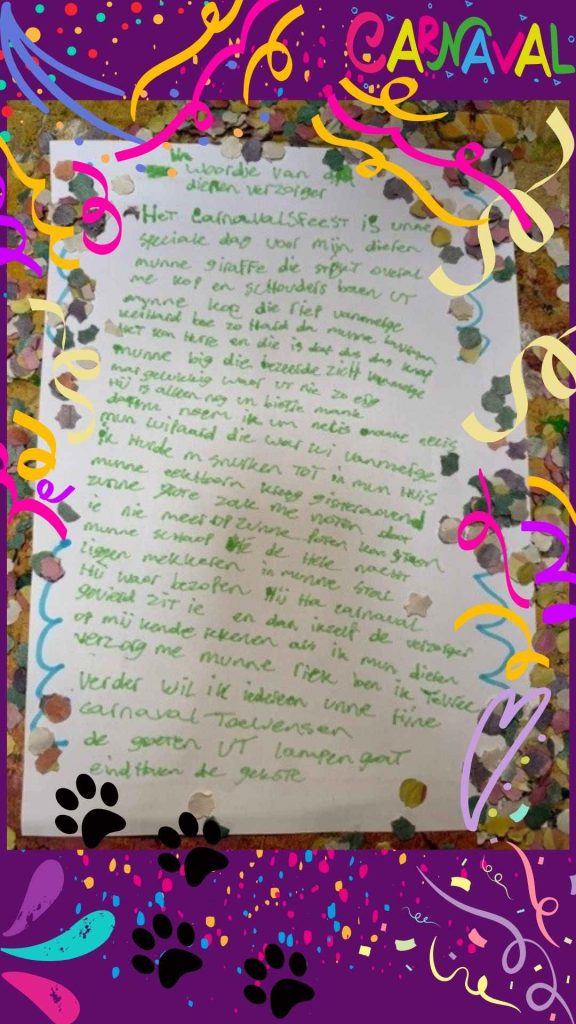 CARNAVAL
Woordje van
dieren verzorger
HET CarnavalsFeest is unne
speciale dag voor mijn dieren
munne giraffe die stBut overal
me kop en schouders boven UT
mynne kop die riep vanmerge
keihard boe zo Hard da munne
HET kon Hurre en die is dat dus
munne big die bezeerde zich vanmerge
mar gelukkig waar ut nie zo erg
Hij is alleen nog un bietje mank
darum noem ik um nelis manke nelis
mun luipaard die war lui vanmerge
Ik Hurde m snurken TOT in mun Huis
munne eekHoorn kreeg gisteravond
zunne grote zak me noten daar
ie nie meer op zunne Poten kon staan
munne schaap de Hele nacht
liggen mekkeren in munne stal
Hij waar bezopen Hij Ha carnaval
gevierd zit ie en dan ikzelf de verzorger
op mij kende rekenen als ik mun dieren
verzorg me munne riek ben ik
Verder wil ik iedereen unne fijne
carnaval Toewensen
de groeten UT lampengat
eindHoven de gekste